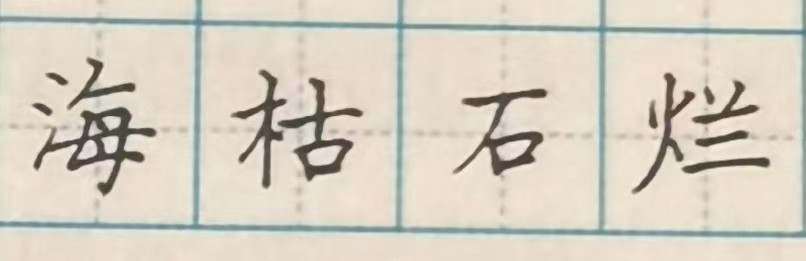 海枯石烂